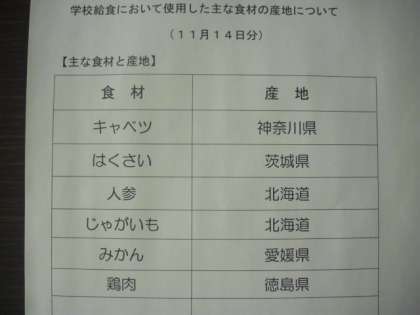 学校給食において使用した主な食材の産地について
（１１月１４日分）
【主な食材と産地】
食　材　産　地
キャベツ　神奈川県
はくさい　茨城県
人参　北海道
じゃがいも　北海道
みかん　愛媛県
鶏肉　徳島県